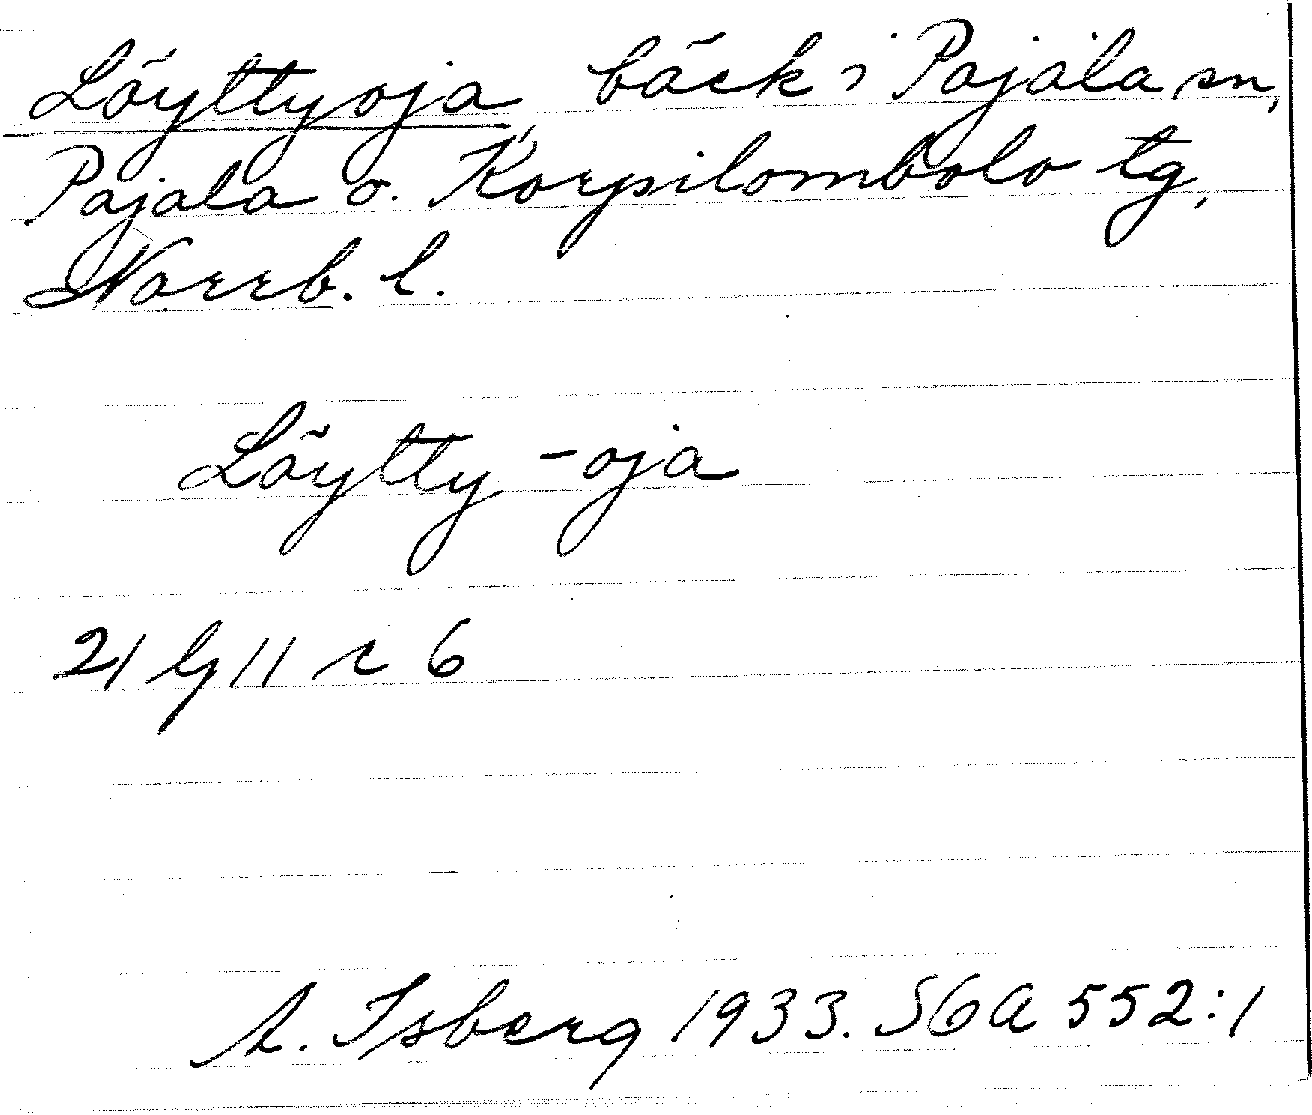 Löyttyoja, bäck i Pajala sn,
Pajala o. Korpilombolo tg,
Norrb. l.
Löytty-oja
21 G 11 r 6
A. Isberg 1933. SGA 552:1